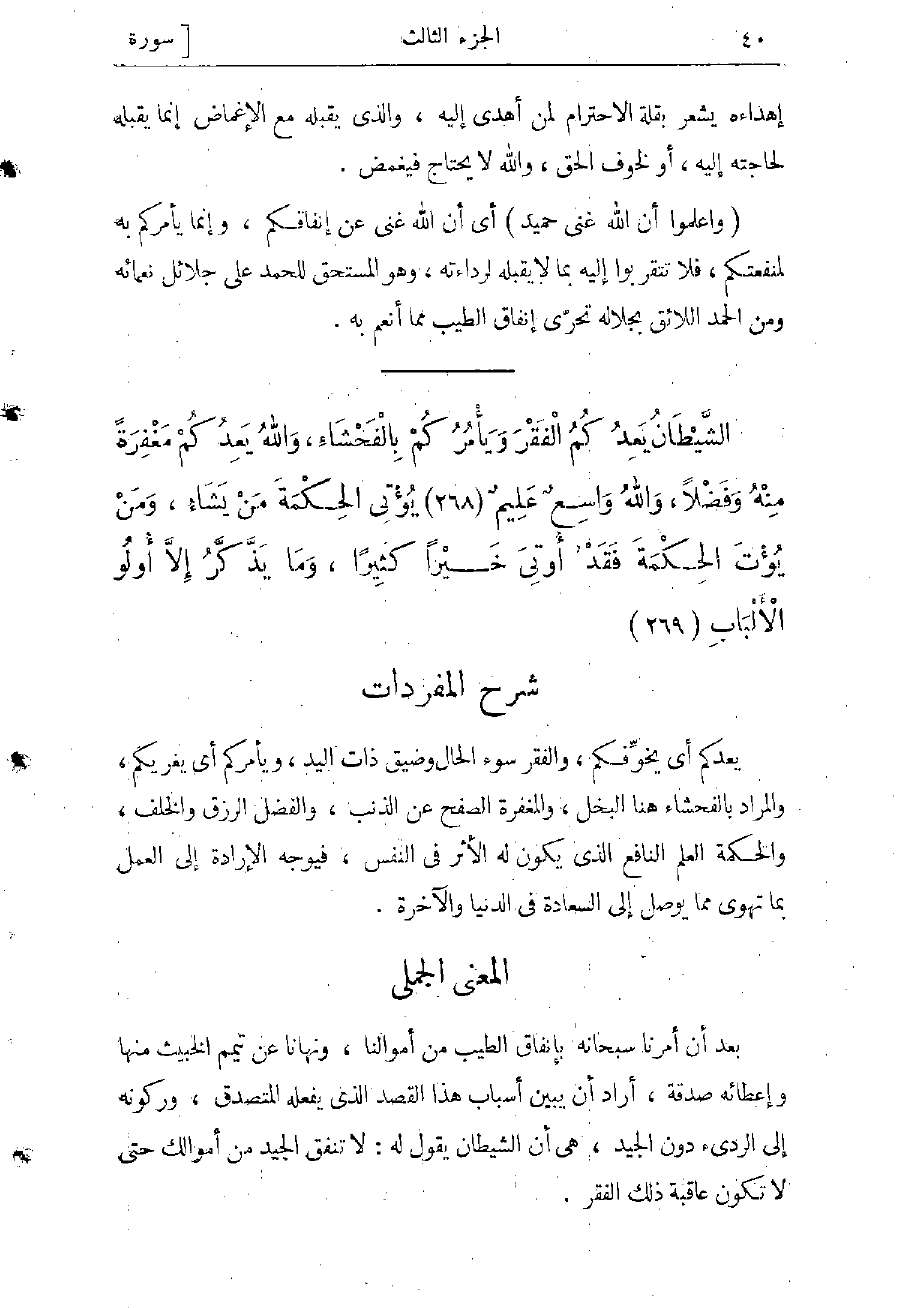 ٤٠ الجزء الثالث [ سورة
إهداءه يشعر بقلة الاحترام لمن أهدى إليه ، والذى يقبله مع الإغماض إنما يقبله
لحاجته إليه ، أو لخوف الحق ، والله لا يحتاج فيغمض .
( واعلموا أن الله غنى حميد ) أى أن الله غنى عن إنفاقكم ، وإنما يأمركم به
لمنفعتكم ، فلا تتقربوا إليه بما لا يقبله لرداءته ، وهو المستحق للحمد على جلائل نعمائه
ومن الحمد اللائق بجلاله تحرّى إنفاق الطيب مما أنعم به .
الشَّيْطَانُ يَعِدُ كُمُ الْفَقْرَ وَيَأْمُرُ كُمْ بِالْفَحْشَاءِ ، وَاللهُ يَعِدُ كُمْ مَغْفِرَةً
مِنْهُ وَفَضْلاً ، وَاللهُ وَاسِعٌ عَلِيمٌ (٢٦٨) يُؤْتِى الْحِكْمَةَ مَنْ يَشَاءُ ، وَمَنْ
يُؤْتَ الْحِكْمَةَ فَقَدْ أُوتِىَ خَيْرًا كَثِيرًا ، وَمَا يَذَّكَّرُ إِلاَّ أُولُو
الْأَلْبَابِ (٢٦٩)
شرح المفردات
يعدكم أى يخوّفكم ، والفقر سوء الحال وضيق ذات اليد ، ويأمركم أى يغريكم ،
والمراد بالفحشاء هنا البخل ، والمغفرة الصفح عن الذنب ، والفضل الرزق والخلف ،
والحكمة العلم النافع الذى يكون له الأثر فى النفس ، فيوجه الإرادة إلى العمل
بما تهوى مما يوصل إلى السعادة فى الدنيا والآخرة .
المعنى الجملى
بعد أن أمرنا سبحانه بإنفاق الطيب من أموالنا ، ونهانا عن تيمم الخبيث منها
وإعطائه صدقة ، أراد أن يبين أسباب هذا القصد الذى يفعله المتصدق ، وركونه
إلى الردىء دون الجيد ، هى أن الشيطان يقول له : لا تنفق الجيد من أموالك حتى
لا تكون عاقبة ذلك الفقر .